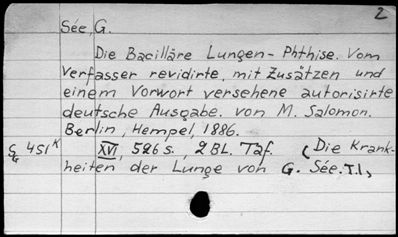 2
Sée, G.
Die Bacilläre Lungen-Phthise. Vom
Verfasser revidirte, mit Zusätzen und
einem Vorwort versehene autorisirte
deutsche Ausgabe. von M. Salomon.
Berlin, Hempel, 1886.
XVI, 526 s., 2 BL. Taf. (Die Krank-
heiten der Lunge von G. Sée. T.1,
451 K